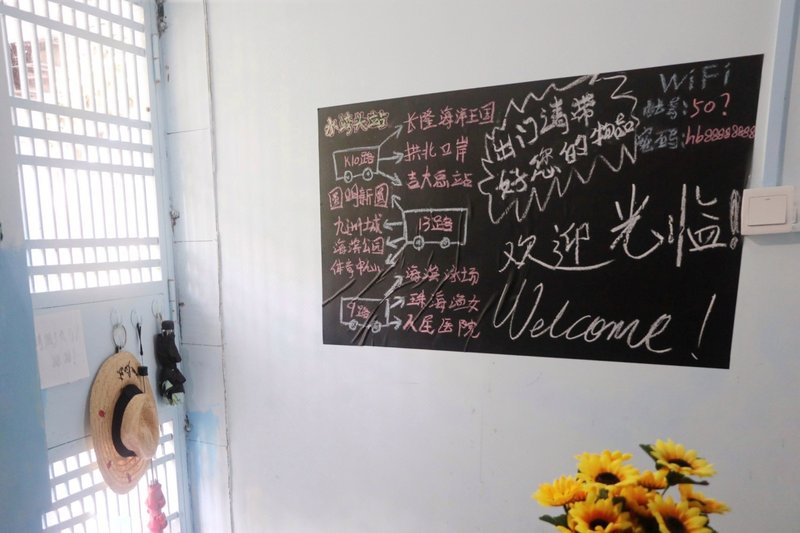 水湾头站
K10路
长隆海洋王国
拱北口岸
吉大总站
圆明新园
九洲城
海滨公园
体育中心
13路
9路
海滨泳场
珠海渔女
人民医院
出门请带
好您的物品
WiFi
账号:50?
密码:hb88888888
欢迎光临!
Welcome!